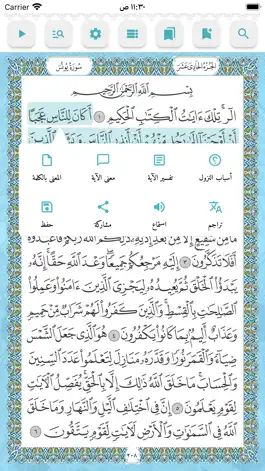 Carrier ١١:٣٠ ص
سورة يونس الجزء الحادي عشر
بِسْمِ اللَّهِ الرَّحْمَٰنِ الرَّحِيمِ
الٓر ۚ تِلْكَ ءَايَٰتُ ٱلْكِتَٰبِ ٱلْحَكِيمِ ١ أَكَانَ لِلنَّاسِ عَجَبًا
أسباب النزول تفسير الآية معنى الآية المعنى بالكلمة
تراجم استماع مشاركة حفظ
مَا مِن شَفِيعٍ إِلَّا مِنۢ بَعْدِ إِذْنِهِۦ ۚ ذَٰلِكُمُ ٱللَّهُ رَبُّكُمْ فَٱعْبُدُوهُ
أَفَلَا تَذَكَّرُونَ ٣ إِلَيْهِ مَرْجِعُكُمْ جَمِيعًا ۖ وَعْدَ ٱللَّهِ حَقًّا ۚ إِنَّهُۥ
يَبْدَؤُا۟ ٱلْخَلْقَ ثُمَّ يُعِيدُهُۥ لِيَجْزِىَ ٱلَّذِينَ ءَامَنُوا۟ وَعَمِلُوا۟
ٱلصَّٰلِحَٰتِ بِٱلْقِسْطِ ۚ وَٱلَّذِينَ كَفَرُوا۟ لَهُمْ شَرَابٌ مِّنْ حَمِيمٍ
وَعَذَابٌ أَلِيمٌۢ بِمَا كَانُوا۟ يَكْفُرُونَ ٤ هُوَ ٱلَّذِى جَعَلَ ٱلشَّمْسَ
ضِيَآءً وَٱلْقَمَرَ نُورًا وَقَدَّرَهُۥ مَنَازِلَ لِتَعْلَمُوا۟ عَدَدَ ٱلسِّنِينَ
وَٱلْحِسَابَ ۚ مَا خَلَقَ ٱللَّهُ ذَٰلِكَ إِلَّا بِٱلْحَقِّ ۚ يُفَصِّلُ ٱلْءَايَٰتِ
لِقَوْمٍ يَعْلَمُونَ ٥ إِنَّ فِى ٱخْتِلَٰفِ ٱلَّيْلِ وَٱلنَّهَارِ وَمَا خَلَقَ
ٱللَّهُ فِى ٱلسَّمَٰوَٰتِ وَٱلْأَرْضِ لَءَايَٰتٍ لِّقَوْمٍ يَتَّقُونَ ٦
٢٠٨